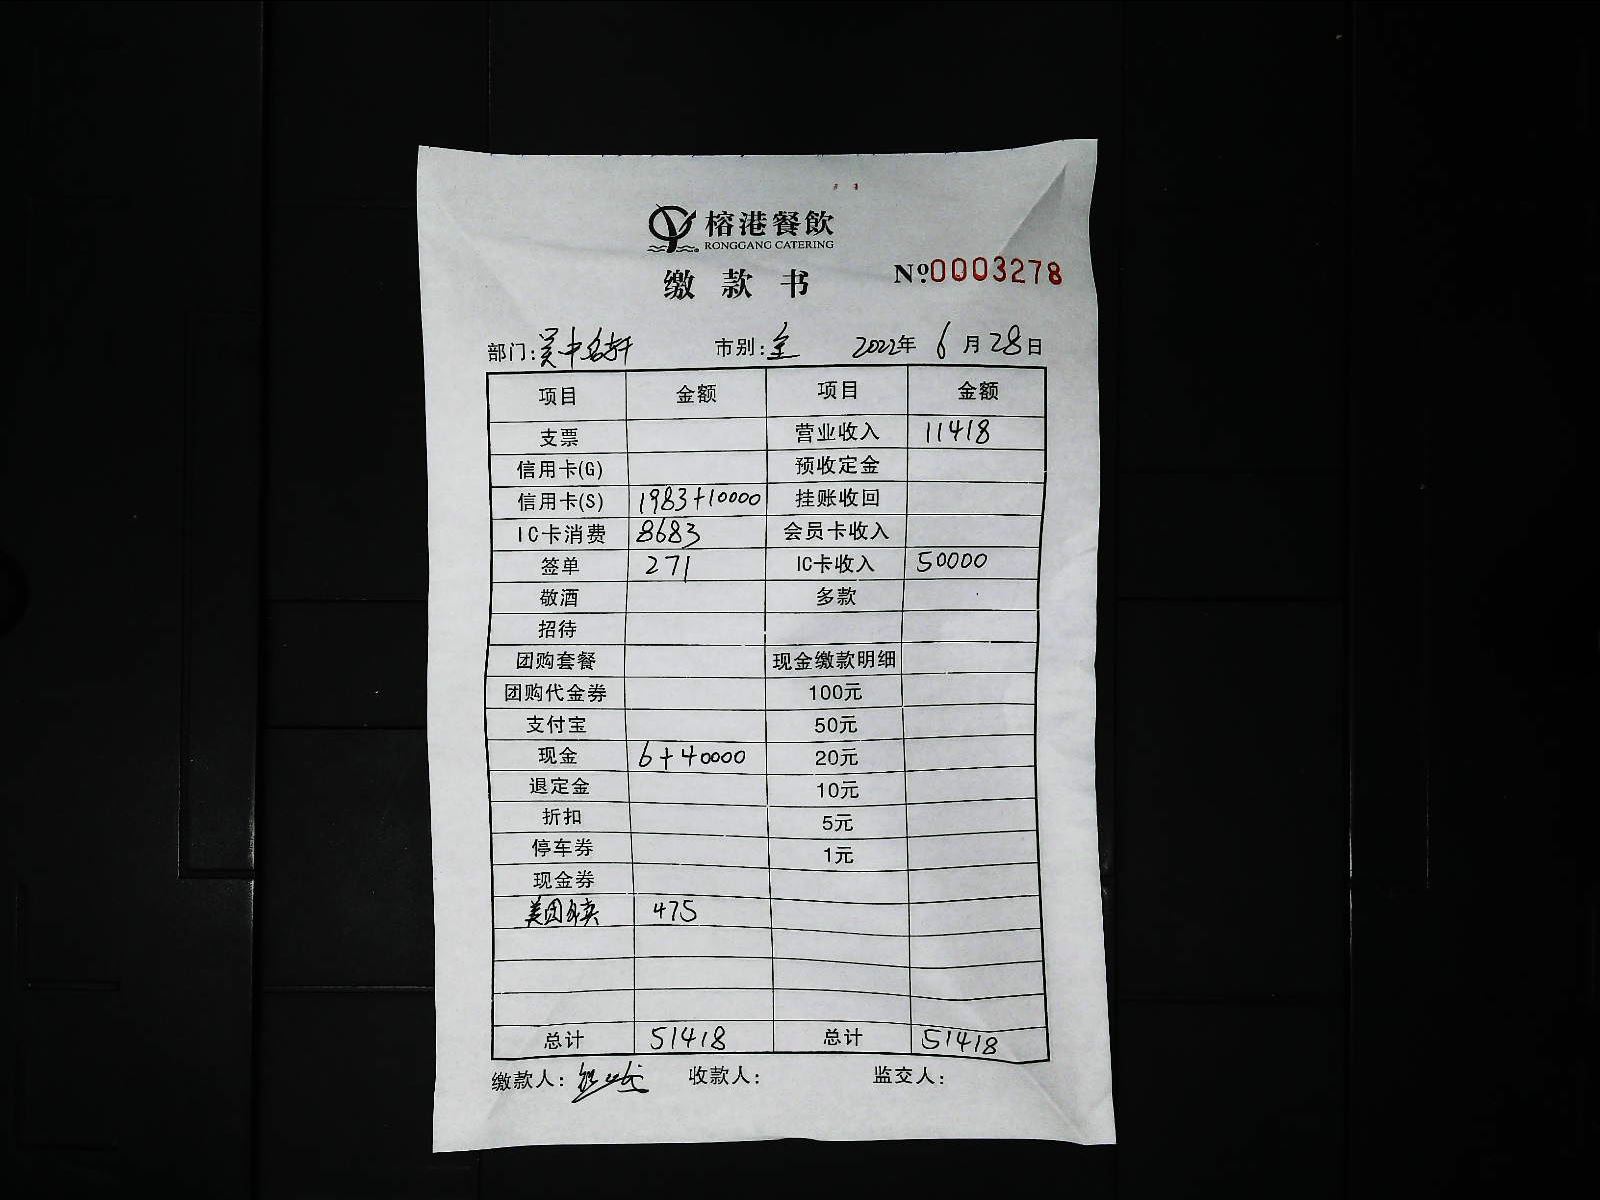 榕港餐飲
RONGGANG CATERING
缴款书
№0003278
部门:吴中名轩 市别:全 2022年 6月28日
项目 金额 项目 金额
支票 营业收入 11418
信用卡(G) 预收定金
信用卡(S) 1983+10000 挂账收回
IC卡消费 8683 会员卡收入
签单 271 IC卡收入 50000
敬酒 多款
招待
团购套餐 现金缴款明细
团购代金券 100元
支付宝 50元
现金 6+40000 20元
退定金 10元
折扣 5元
停车券 1元
现金券
美团外卖 475
总计 51418 总计 51418
缴款人: 收款人: 监交人: